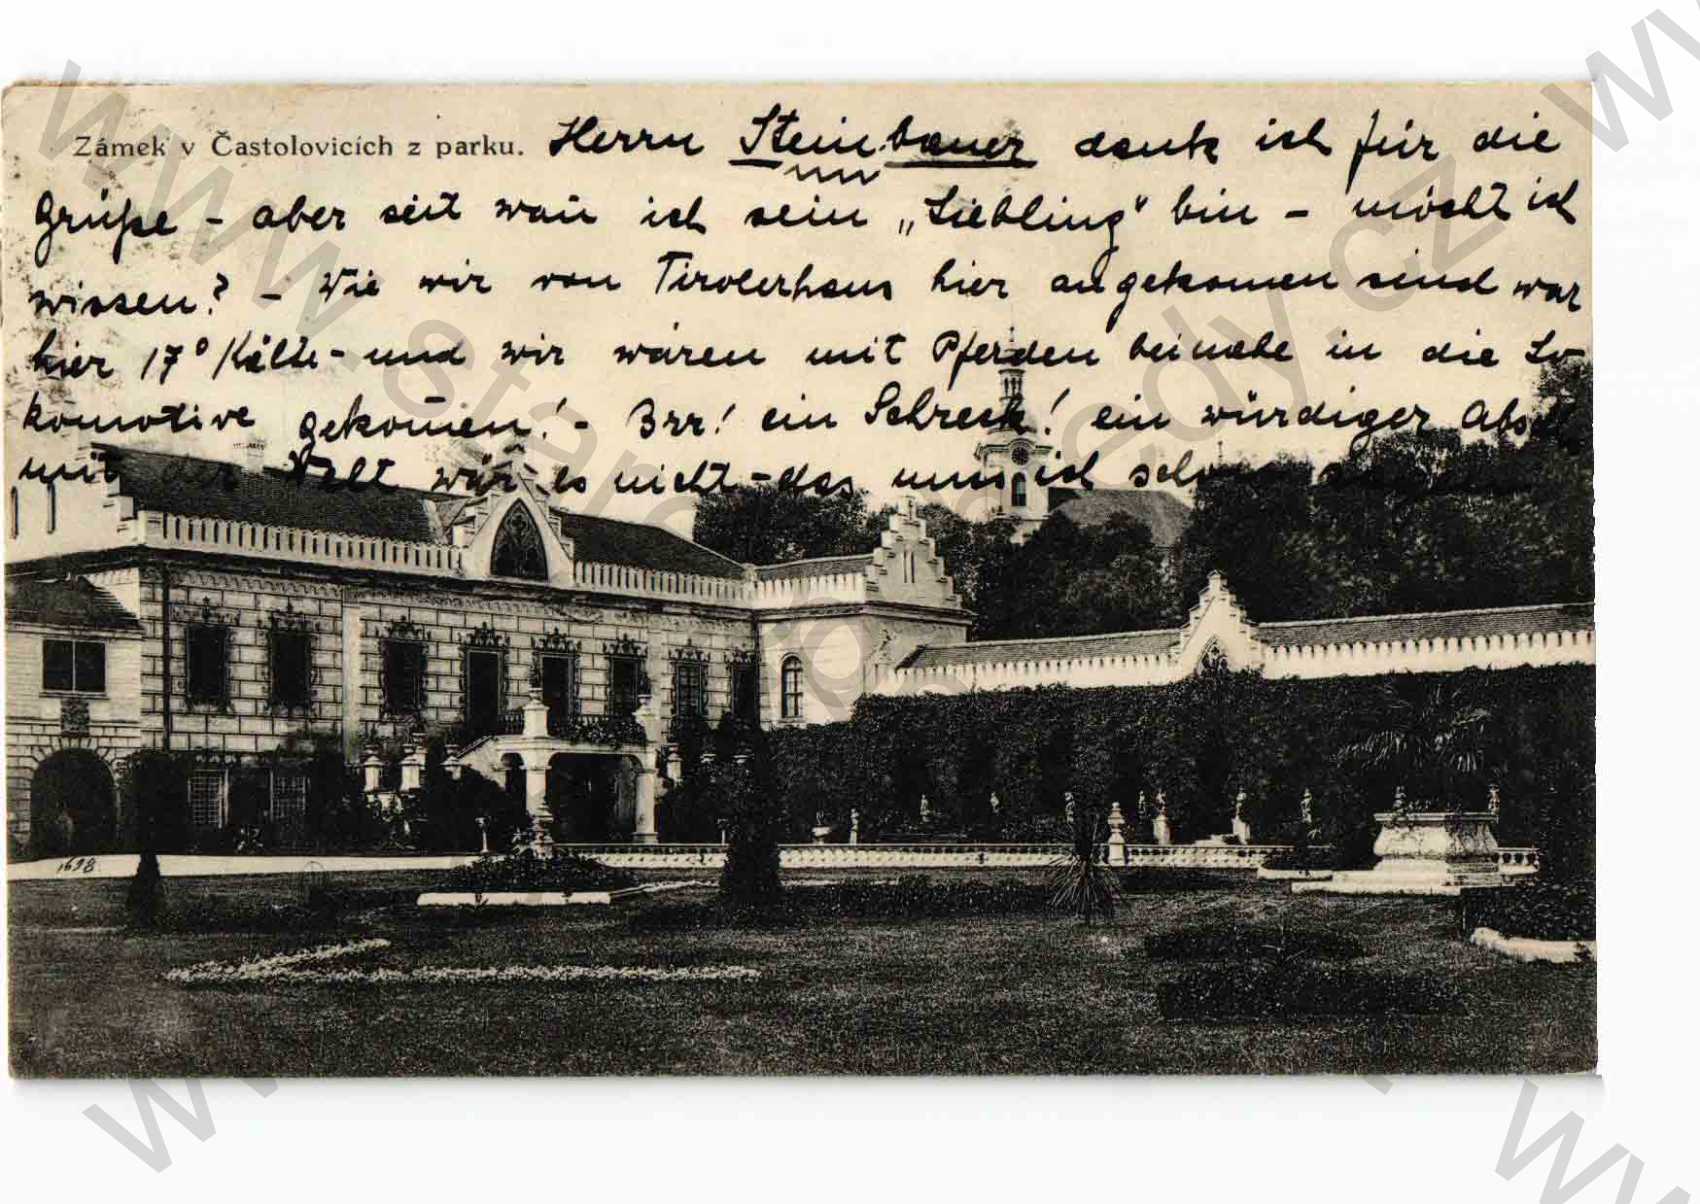 Zámek v Častolovicích z parku. Herrn Steinbauer dank ich für die
Grüße - aber seit wan̄ ich sein „Liebling" bin - möcht ich
wissen? - Wie wir von Tirolerhaus hier angekomen sind war
hier 17° Kälte - und wir wären mit Pferden beinahe in die Lo
komotive gekom̄en! - Brr! ein Schreck! ein würdiger
mit der Welt wär es nicht - das muss ich schon
1698.
www.starepohledy.cz